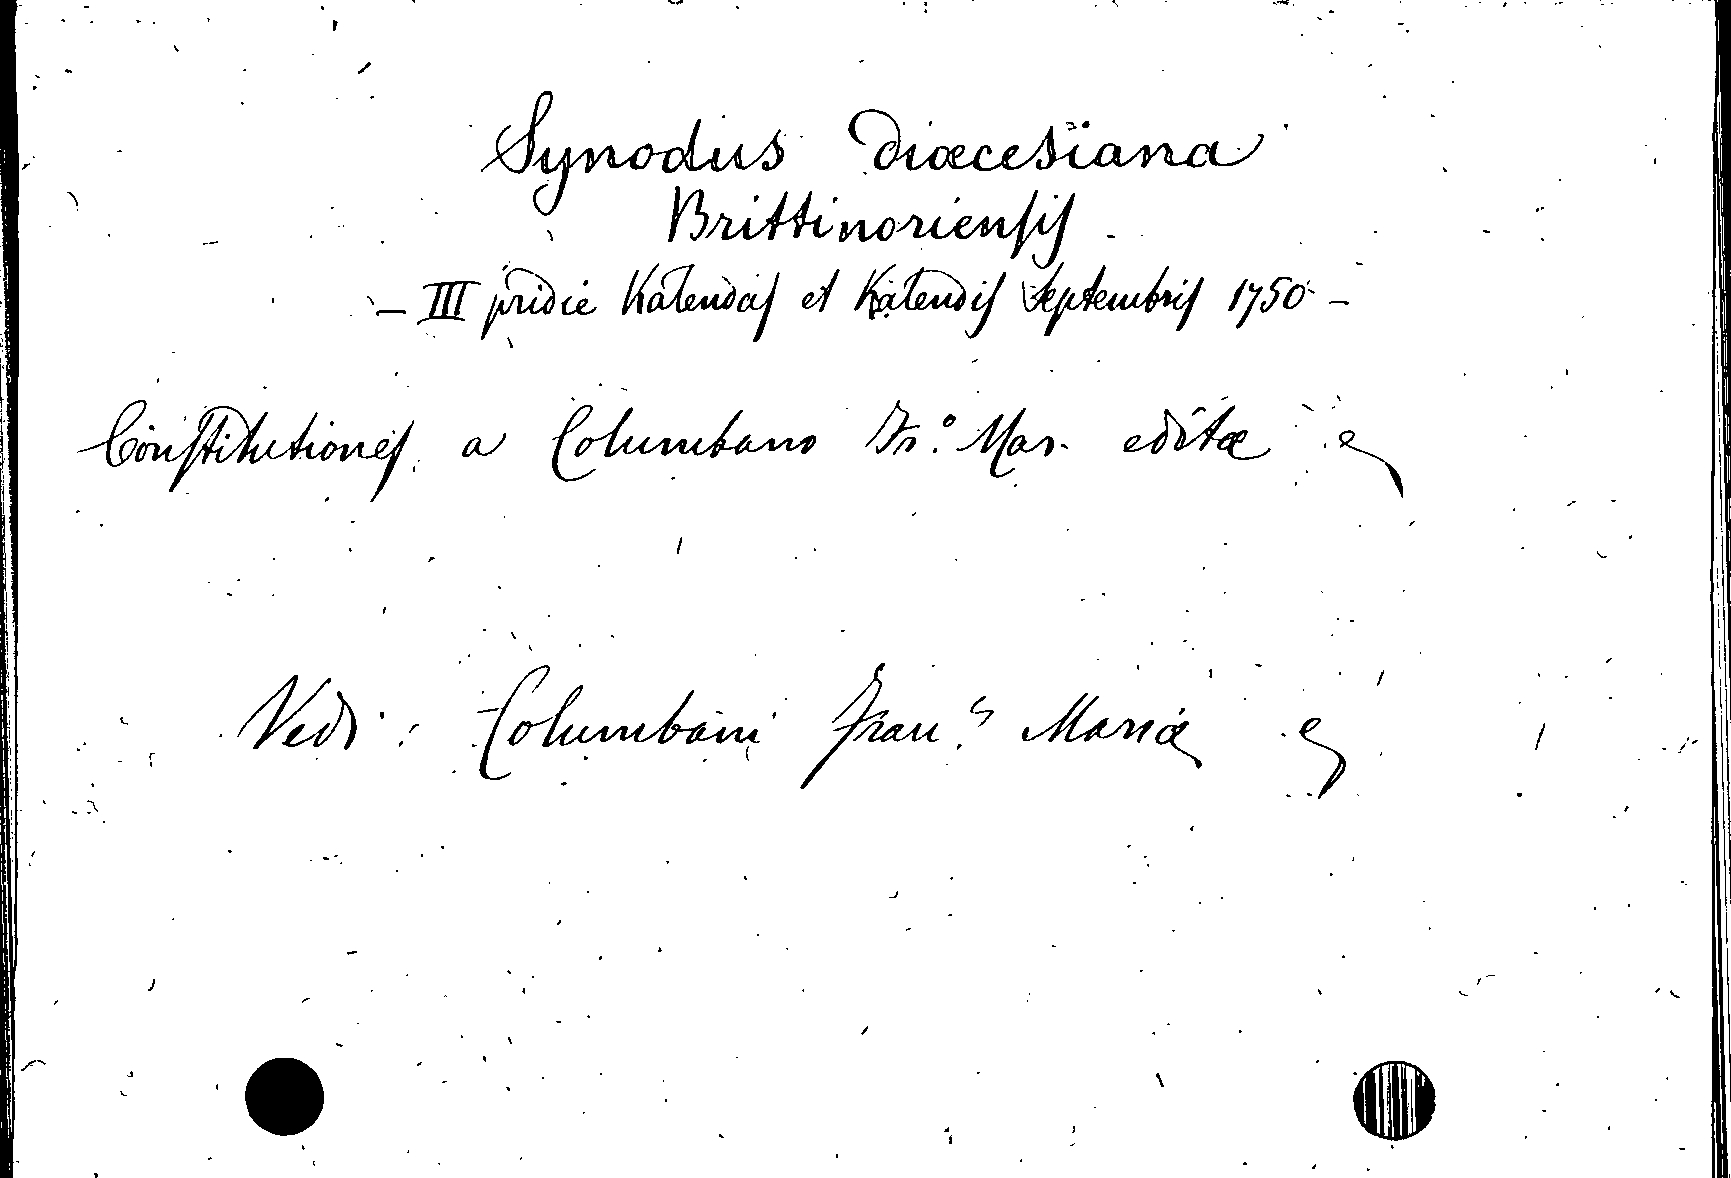 Synodus Diœcesiana
Brittinoriensis
– III pridie Kalendas et Kalendis Septembris 1750 –
Constitutiones a Columbano Fr.º Mar. editæ
Vedi: Columbani Fran.ˢ Mariæ